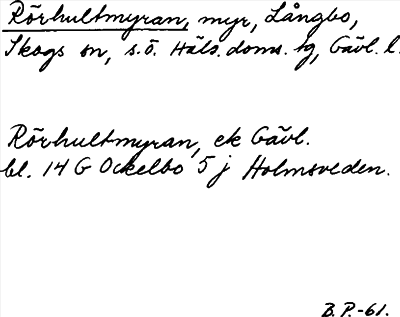 Rörhultmyran, myr, Långbo,
Skogs sn, s.ö. Häls. doms. tg, Gävl. l.
Rörhultmyran, ek Gävl.
bl. 14 G Ockelbo 5 j Holmsveden.
B.P.-61.